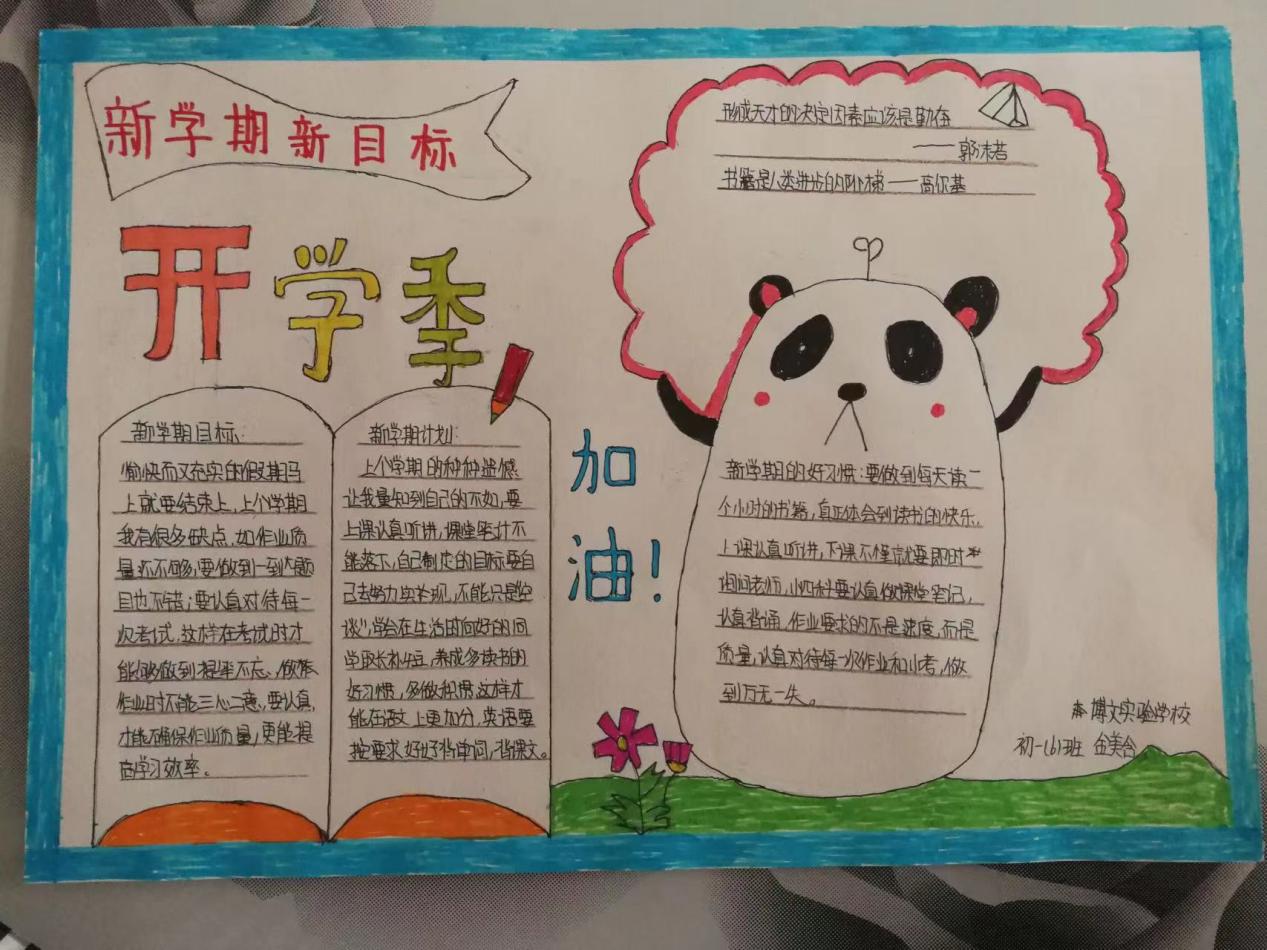 新学期新目标
开学季
新学期目标:
愉快而又充实的假期马
上就要结束上,上个学期
我有很多缺点,如作业质
量还不够,要做到一到大题
目也不错;要认真对待每一
次考试,这样在考试时才
能够做到提笔不忘,做
作业时不能三心二意,要认真,
才能确保作业质量,更能提
高学习效率。
新学期计划:
上个学期的种种遗憾
让我量知到自己的不如,要
上课认真听讲,课堂笔计不
能落下,自己制定的目标要自
己去努力实现,不能只是空
谈”,学会在生活时向好的同
学取长补短,养成多读书的
好习惯,多做积攒,这样才
能在语文上更加分,英语要
按要求好好背单词,背课文。
加
油!
形成天才的决定因素应该是勤奋
——郭沫若
书籍是人类进步的阶梯——高尔基
新学期的好习惯:要做到每天读二
个小时的书籍,真正体会到读书的快乐,
上课认真听讲,下课不懂就要即时
询问老师,小四科要认真做课堂笔记,
认真背诵,作业要求的不是速度,而是
质量,认真对待每一次作业和小考,做
到万无一失。
博文实验学校
初一(6)班 伍美合